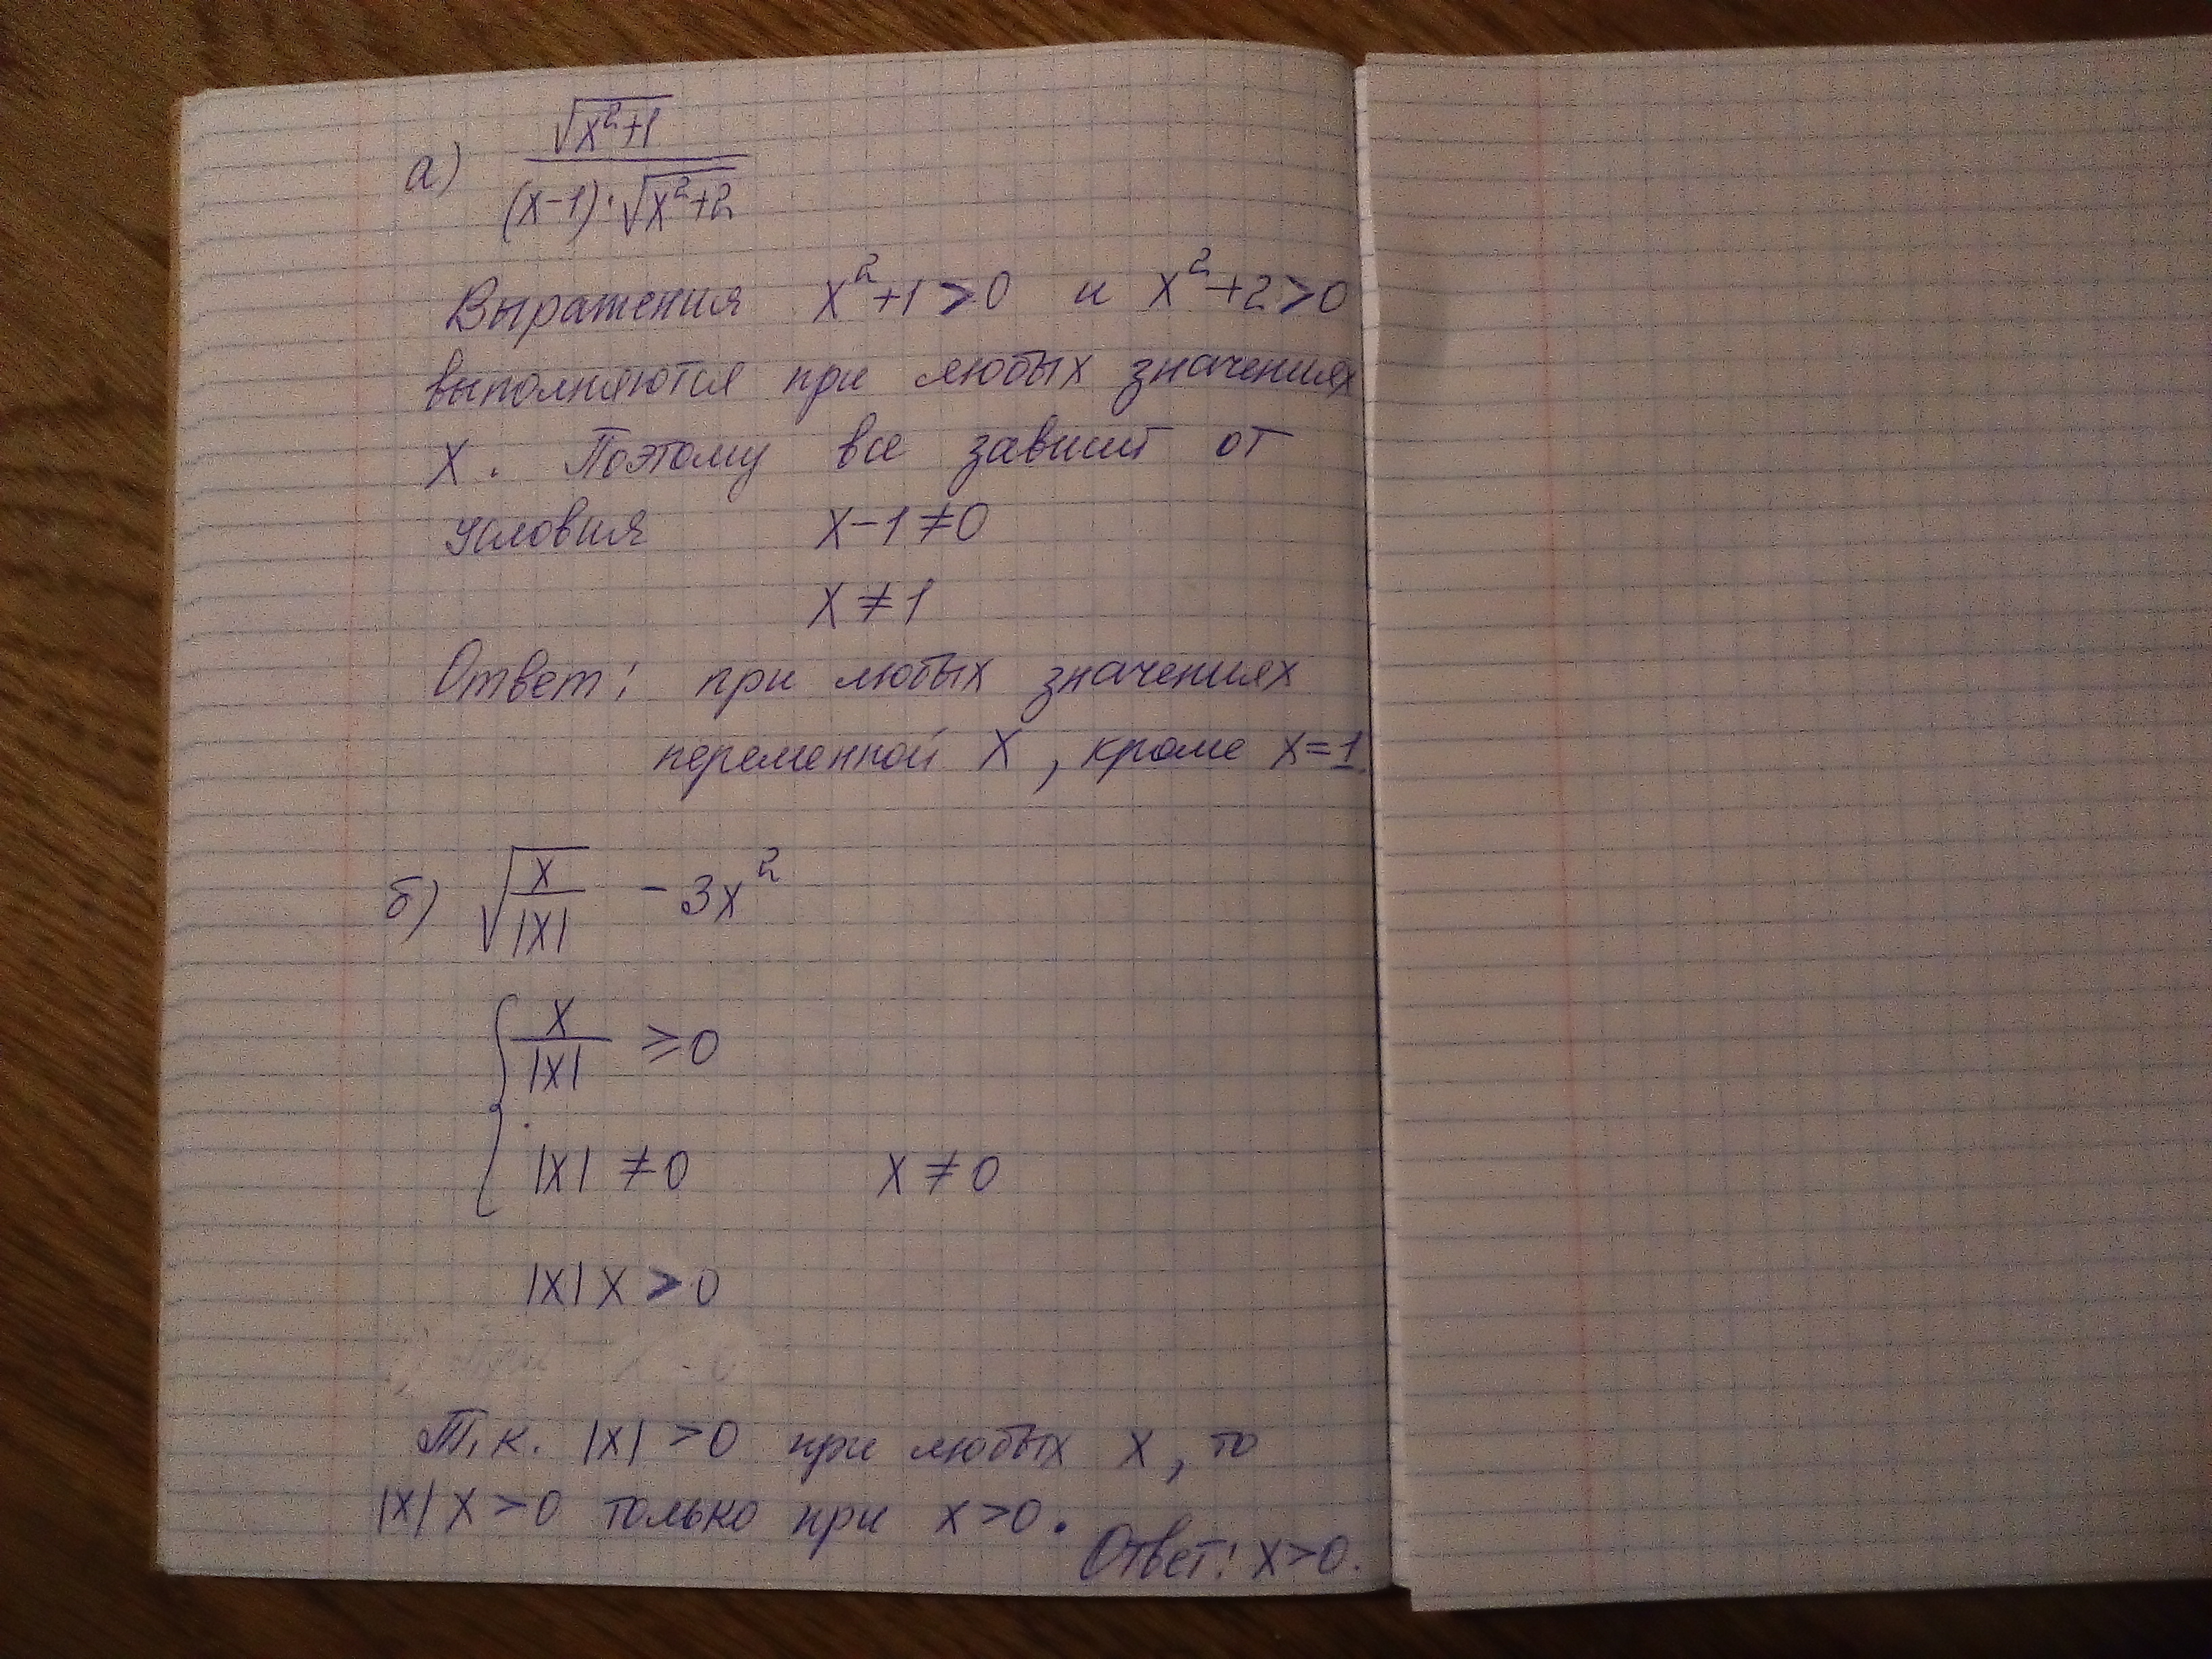 а) √(x²+1) / ((x-1)·√(x²+2))
Выражения x²+1>0 и x²+2>0
выполняются при любых значениях
x. Поэтому все зависит от
условия x-1≠0
x≠1
Ответ: при любых значениях
переменной x, кроме x=1.
б) √(x/|x|) - 3x²
{ x/|x| ≥0
|x| ≠0 x≠0
|x| x >0
Т.к. |x| >0 при любых x, то
|x| x >0 только при x>0.
Ответ: x>0.